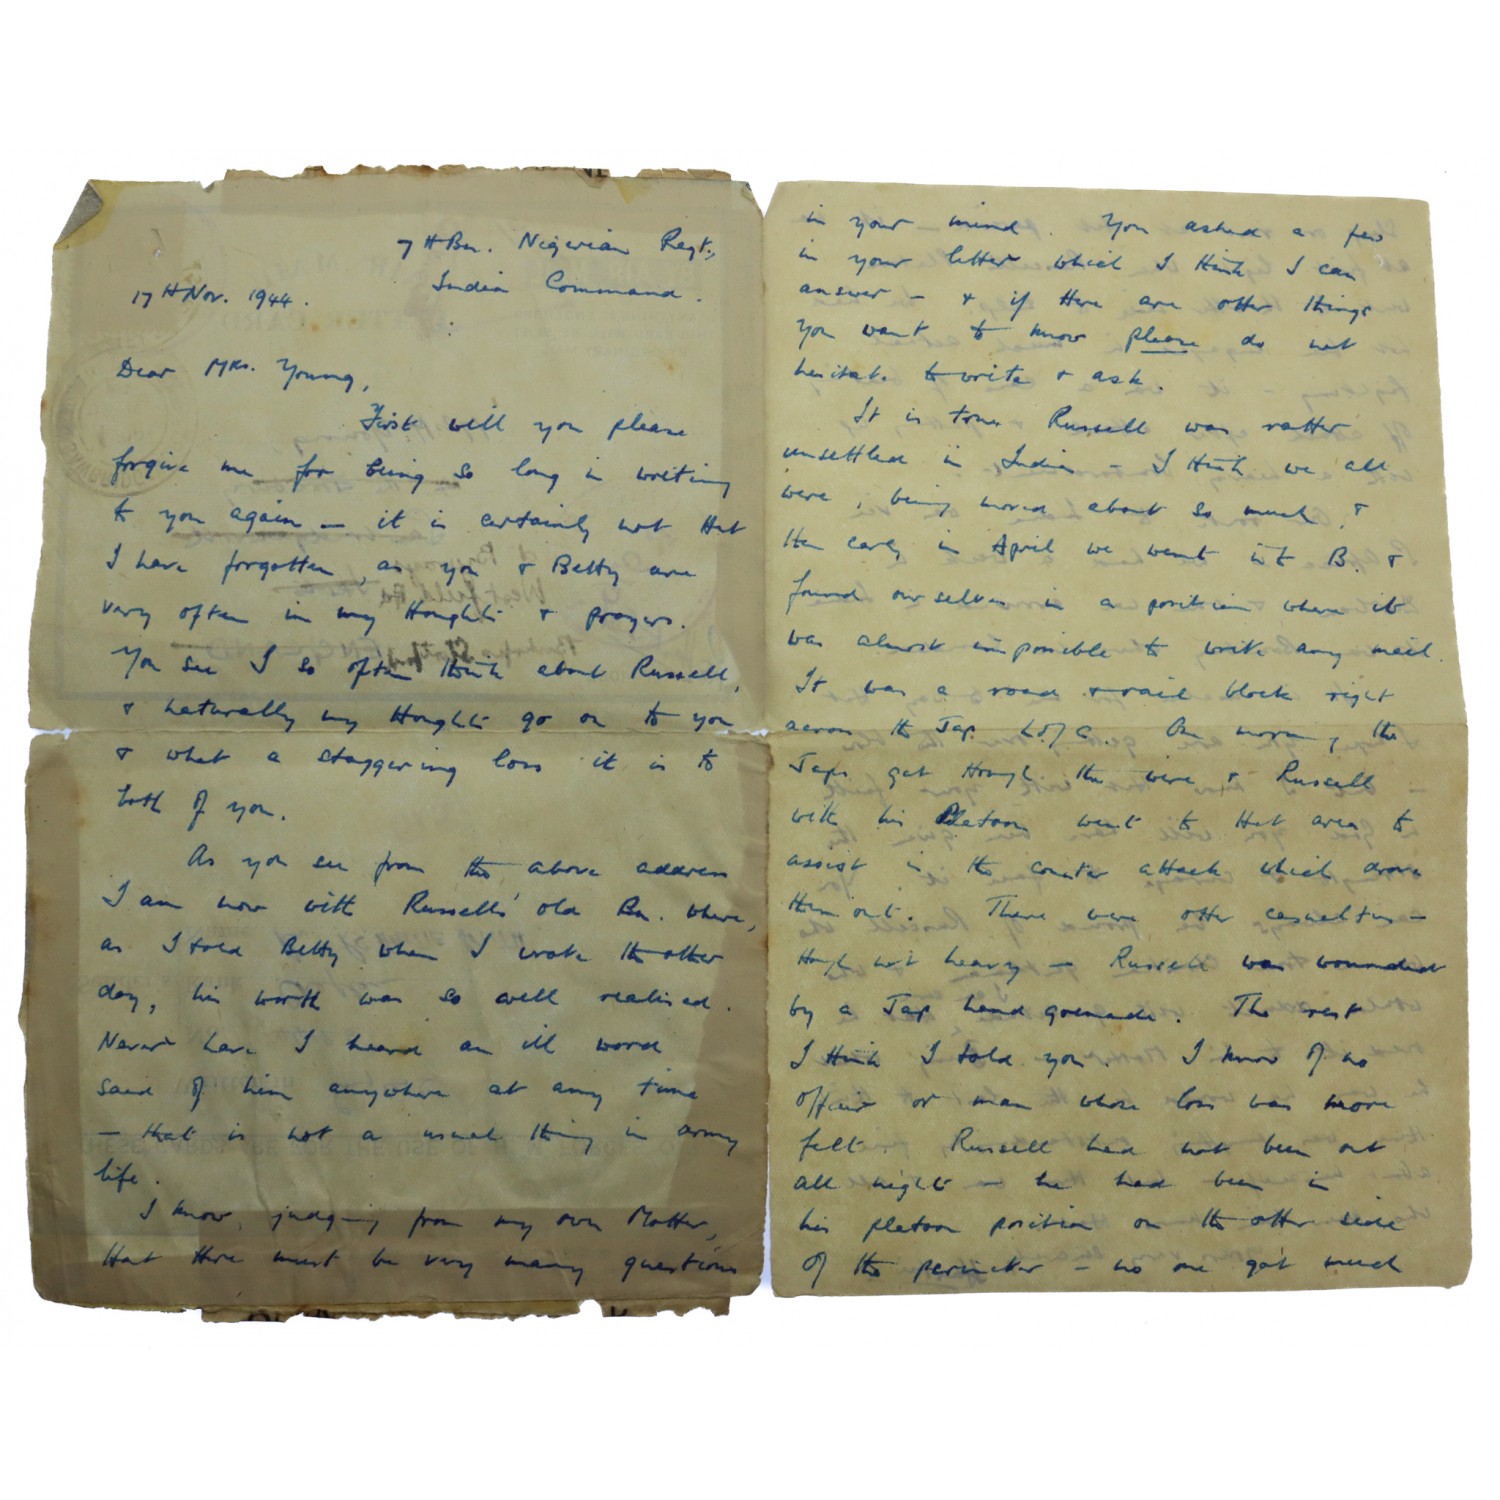 7th Bn. Nigerian Regt.,
India Command.
17th Nov. 1944.
Dear Mrs. Young,
First will you please
forgive me for being so long in writing
to you again – it is certainly not that
I have forgotten, as you & Betty are
very often in my thoughts & prayers.
You see I so often think about Russell,
& naturally my thoughts go on to you
& what a staggering loss it is to
both of you.
As you see from the above address
I am now with Russells' old Bn. where,
as I told Betty when I wrote the other
day, his worth was so well realised.
Never have I heard an ill word
said of him anywhere at any time
– that is not a usual thing in army
life.
I know, judging from my own Mother,
that there must be very many questions
in your mind. You asked a few
in your letter which I think I can
answer – & if there are other things
you want to know please do not
hesitate to write & ask.
It is true Russell was rather
unsettled in India – I think we all
were, being moved about so much, &
then early in April we went into B. &
found ourselves in a position where it
was almost impossible to write any mail.
It was a road & rail block right
across the Jap L.of C. One morning the
Japs got through the wire & Russell
with his Platoon went to that area to
assist in the counter attack which drove
them out. There were other casualties –
though not heavy – Russell was wounded
by a Jap hand grenade. The rest
I think I told you. I know of no
officer or man whose loss was more
felt. Russell had not been out
all night – he had been in
his platoon position on the other side
of the perimeter – no one got much